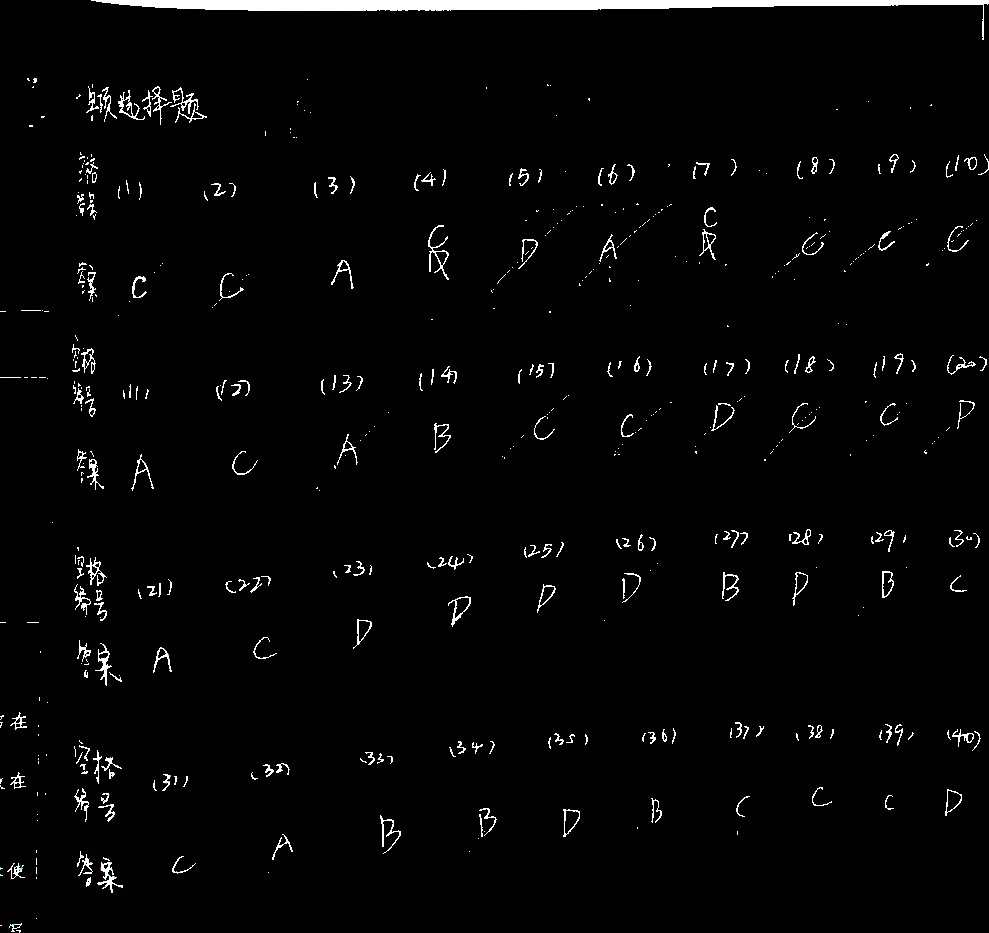 单项选择题
空格编号 (1) (2) (3) (4) (5) (6) (7) (8) (9) (10)
答案 C C A C D A C C C C
空格编号 (11) (12) (13) (14) (15) (16) (17) (18) (19) (20)
答案 A C A B C C D C C D
空格编号 (21) (22) (23) (24) (25) (26) (27) (28) (29) (30)
答案 A C D D D D B D B C
空格编号 (31) (32) (33) (34) (35) (36) (37) (38) (39) (40)
答案 C A B B D B C C C D
在
在
使
写